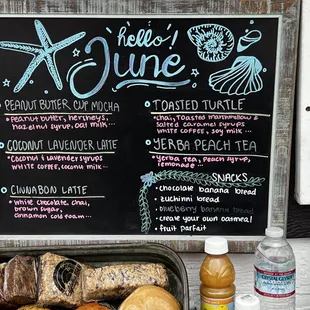 hello!
June
PEANUT BUTTER CUP MOCHA
• Peanut butter, hersheys,
hazelnut syrup, oat milk...
COCONUT LAVENDER LATTE
• Coconut & lavender syrups
WHITE COFFEE, coconut milk
CINNABON LATTE
• White chocolate, chai,
brown sugar,
cinnamon cold foam...
TOASTED TURTLE
• Chai, Toasted marshmallow &
salted caramel syrups
WHITE COFFEE, SOY milk...
YERBA PEACH TEA
• Yerba tea, peach syrup,
lemonade...
SNACKS
• chocolate banana bread
• zuchinni bread
• blueberry banana bread
• create your own oatmeal
• fruit parfait
CRYSTAL GEYSER